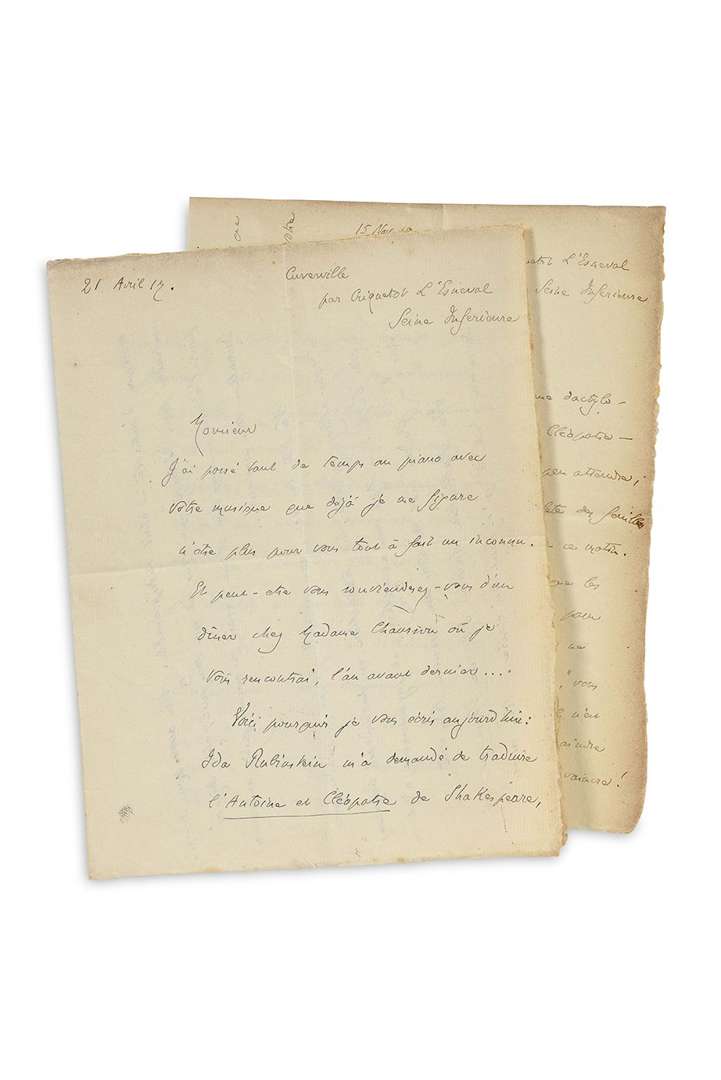 21 Avril 17.
Cuverville
par Criquetot L'Esneval
Seine Inferieure
Monsieur
J'ai passé tant de temps au piano avec
votre musique que déjà je me figure
n'être plus pour vous tout à fait un inconnu.
Et peut-etre vous souviendrez-vous d'un
dîner chez Madame où je
vous rencontrai, l'an avant dernier....
Voici pourquoi je vous écris aujourd'hui:
Ida Rubinstein m'a demandé de traduire
l'Antoine et Cléopatre de Shakespeare,
15
L'Esneval
Seine Inferieure
dactylo-
Cléopatre-
peu attendre;
des feuilles
ce matin.
les
pour
ne
vous
n'en